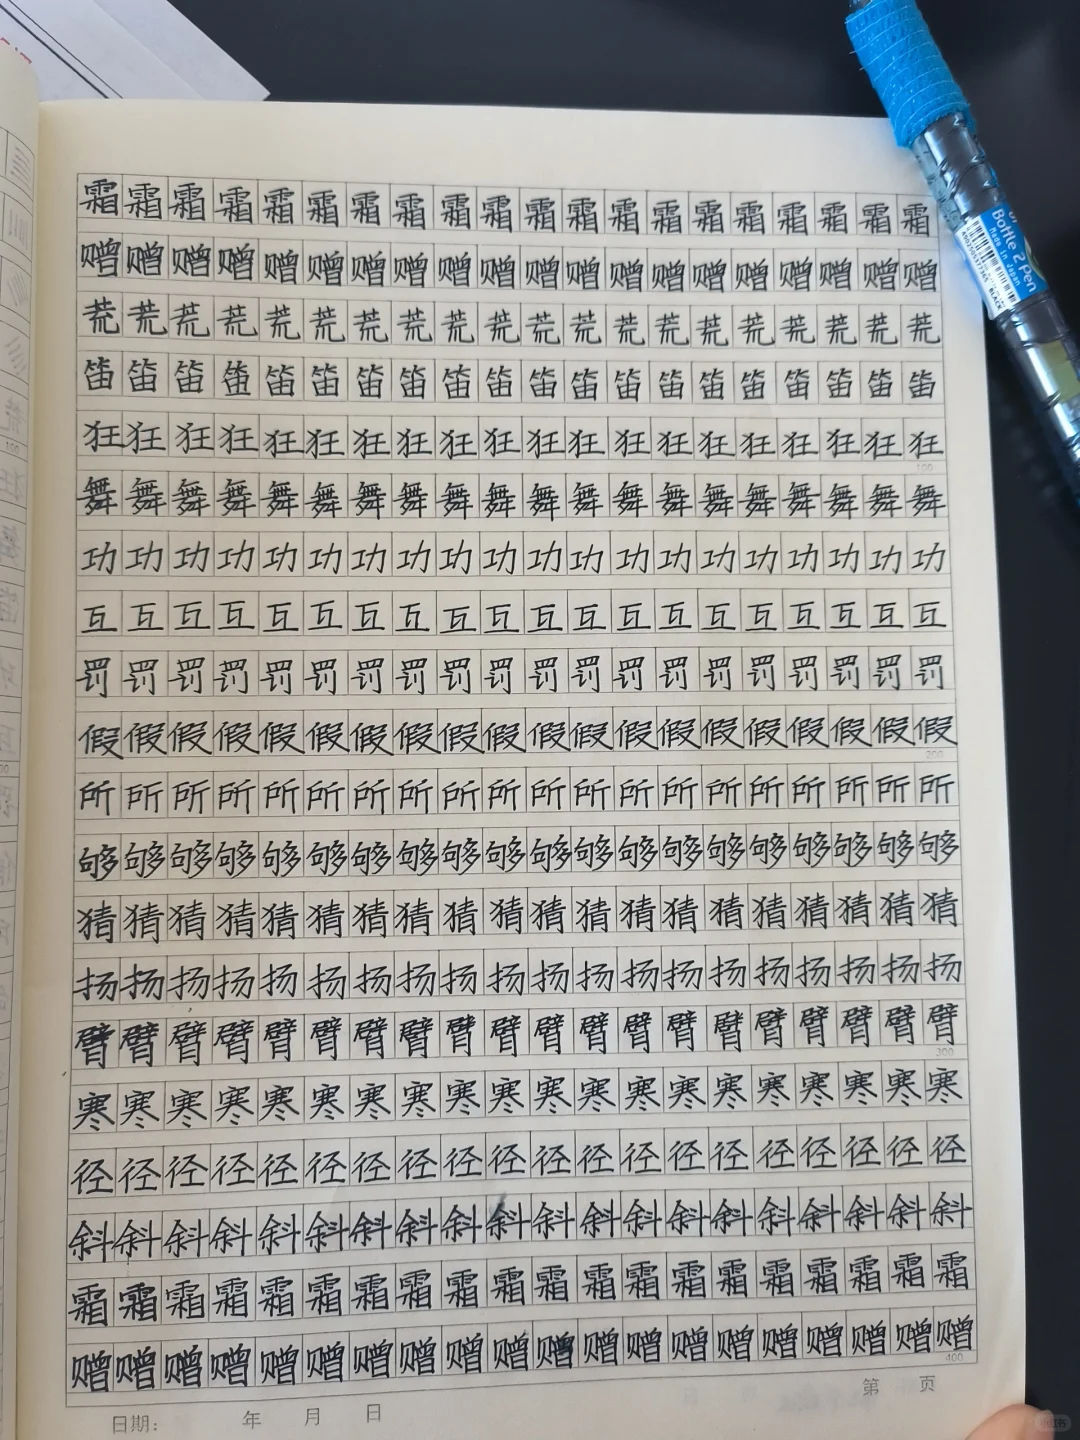 霜霜霜霜霜霜霜霜霜霜霜霜霜霜霜霜霜霜霜霜
赠赠赠赠赠赠赠赠赠赠赠赠赠赠赠赠赠赠赠赠
荒荒荒荒荒荒荒荒荒荒荒荒荒荒荒荒荒荒荒荒
笛笛笛笛笛笛笛笛笛笛笛笛笛笛笛笛笛笛笛笛
狂狂狂狂狂狂狂狂狂狂狂狂狂狂狂狂狂狂狂狂
100
舞舞舞舞舞舞舞舞舞舞舞舞舞舞舞舞舞舞舞舞
功功功功功功功功功功功功功功功功功功功功
互互互互互互互互互互互互互互互互互互互互
罚罚罚罚罚罚罚罚罚罚罚罚罚罚罚罚罚罚罚罚
假假假假假假假假假假假假假假假假假假假假
200
所所所所所所所所所所所所所所所所所所所所
够够够够够够够够够够够够够够够够够够够够
猜猜猜猜猜猜猜猜猜猜猜猜猜猜猜猜猜猜猜猜
扬扬扬扬扬扬扬扬扬扬扬扬扬扬扬扬扬扬扬扬
臂臂臂臂臂臂臂臂臂臂臂臂臂臂臂臂臂臂臂臂
300
寒寒寒寒寒寒寒寒寒寒寒寒寒寒寒寒寒寒寒寒
径径径径径径径径径径径径径径径径径径径径
斜斜斜斜斜斜斜斜斜斜斜斜斜斜斜斜斜斜斜斜
霜霜霜霜霜霜霜霜霜霜霜霜霜霜霜霜霜霜霜霜
赠赠赠赠赠赠赠赠赠赠赠赠赠赠赠赠赠赠赠赠
400
第 页
日期: 年 月 日
Bottle 2 Pen
Made in Japan
BLACK